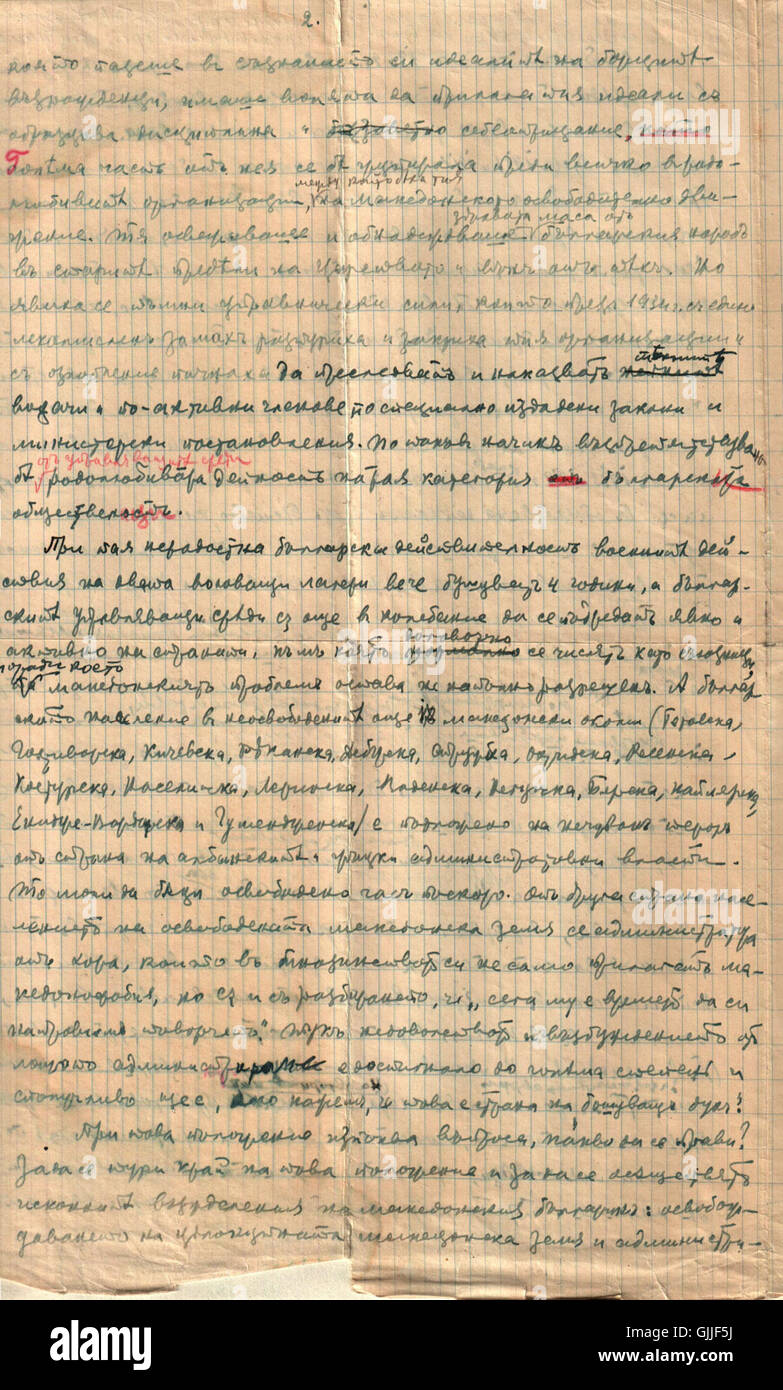 2.
която пазеше в съзнанието си идеалите на борците
възрожденци, имаше волята да прилага тия идеали с
образцова дисциплина и беззаветно себеотрицание, които
Голѣма часть отъ нея се бѣ групирала преди всичко в родо-
между които бѣха и тия
любивитѣ организации, на Македонското освободително дви-
здравата маса отъ
жение. Тя освежаваше и обнадеждаваше българския народъ
въ старитѣ предѣли на Царството и вънъ отъ тѣхъ. Но
явиха се тъмни управнически сили, които презъ 1934 г. съ едно
лекомислен замахъ разтуриха и закриха тия организации и
съ озлобление почнаха да преследватъ и наказватъ
водачи и по-активни членове по специално издадени закони и
министерски постановления. По такъв начинъ възпрепятствува
от управляващите среди
бѣ родолюбивата дейность на тая категория българската
общественость.
При тая нерадостна българска действителность военнитѣ дей-
ствия на двата воюващи лагери вече бушуватъ 4 години, а българ-
скитѣ управляващи среди са още в колебание да се подредятъ явно и
активно на страната, към която формално се числятъ като съюзници,
поради което
македонскиятъ проблемъ остава не напълно разрешенъ. А българ-
ското население в неосвободенитѣ още 18 македонски околии (Тетовска,
Гостиварска, Кичевска, Рѣканска, Дебърска, Стружка, Охридска, Ресенска,
Костурска, Населичка, Леринска, Воденска, Негушка, Берска, Кайлярска,
Енидже-Вардарска и Гумендженска/ е подложено на нечуванъ тероръ
отъ страна на албанскитѣ и гръцки административни власти.
То моли да бѫде освободено час поскоро. Отъ друга страна насе-
лението на освободената македонска земя се администрира
отъ хора, които въ болшинството си не само прилагатъ ма-
кедонофобия, но са и съ разбирането, че „сега му е времето да си
направимъ поборчетъ." Тукъ недоволството и възбуждението от
лошото администриране е достигнало до голѣма степень и
сполучливо ще е, ако наречемъ, че това е страна на бушуващъ духъ!
При това положение изниква въпроса, какво да се прави?
За да се тури край на това положение и за да се осъществятъ
исконнитѣ въжделения на македонския българинъ: освобож-
даването на цѣлокупната македонска земя и администри-
alamy
Image ID: GJJF5J
www.alamy.com